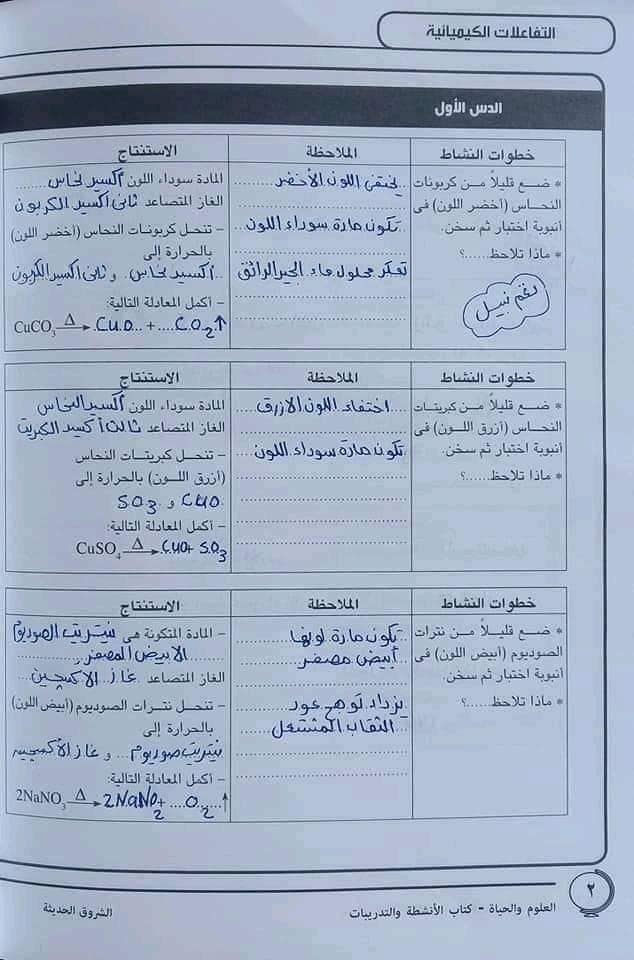 التفاعلات الكيميائية
الدس الأول
خطوات النشاط
الملاحظة
الاستنتاج
* ضع قليلاً من كربونات
النحاس (أخضر اللون) فى
أنبوبة اختبار ثم سخن.
* ماذا تلاحظ......؟
نغم نبيل
يختفى اللون الأخضر
تكون مادة سوداء اللون
تعكر محلول ماء الجير الرائق
المادة سوداء اللون أكسيد نحاس
الغاز المتصاعد ثانى أكسيد الكربون
– تنحل كربونات النحاس (أخضر اللون)
بالحرارة إلى
أكسيد نحاس و ثانى أكسيد الكربون
– أكمل المعادلة التالية:
CuCO₃ —Δ→ CuO + CO₂↑
خطوات النشاط
الملاحظة
الاستنتاج
* ضع قليلاً من كبريتات
النحاس (أزرق اللون) فى
أنبوبة اختبار ثم سخن.
* ماذا تلاحظ......؟
اختفاء اللون الازرق
تكون مادة سوداء اللون
المادة سوداء اللون أكسيد النحاس
الغاز المتصاعد ثالث أكسيد الكبريت
– تنحل كبريتات النحاس
(أزرق اللون) بالحرارة إلى
CuO و SO₃
– أكمل المعادلة التالية:
CuSO₄ —Δ→ CuO + SO₃
خطوات النشاط
الملاحظة
الاستنتاج
* ضع قليلاً من نترات
الصوديوم (أبيض اللون) فى
أنبوبة اختبار ثم سخن.
* ماذا تلاحظ......؟
تكون مادة لونها
أبيض مصفر
يزداد توهج عود
الثقاب المشتعل
– المادة المتكونة هى نيتريت الصوديوم
الابيض المصفر
الغاز المتصاعد غاز الاكسجين
– تنحل نترات الصوديوم (أبيض اللون)
بالحرارة إلى
نيتريت صوديوم و غاز الأكسجين
– أكمل المعادلة التالية:
2NaNO₃ —Δ→ 2NaNO₂ + O₂↑
٢
العلوم والحياة - كتاب الأنشطة والتدريبات
الشروق الحديثة